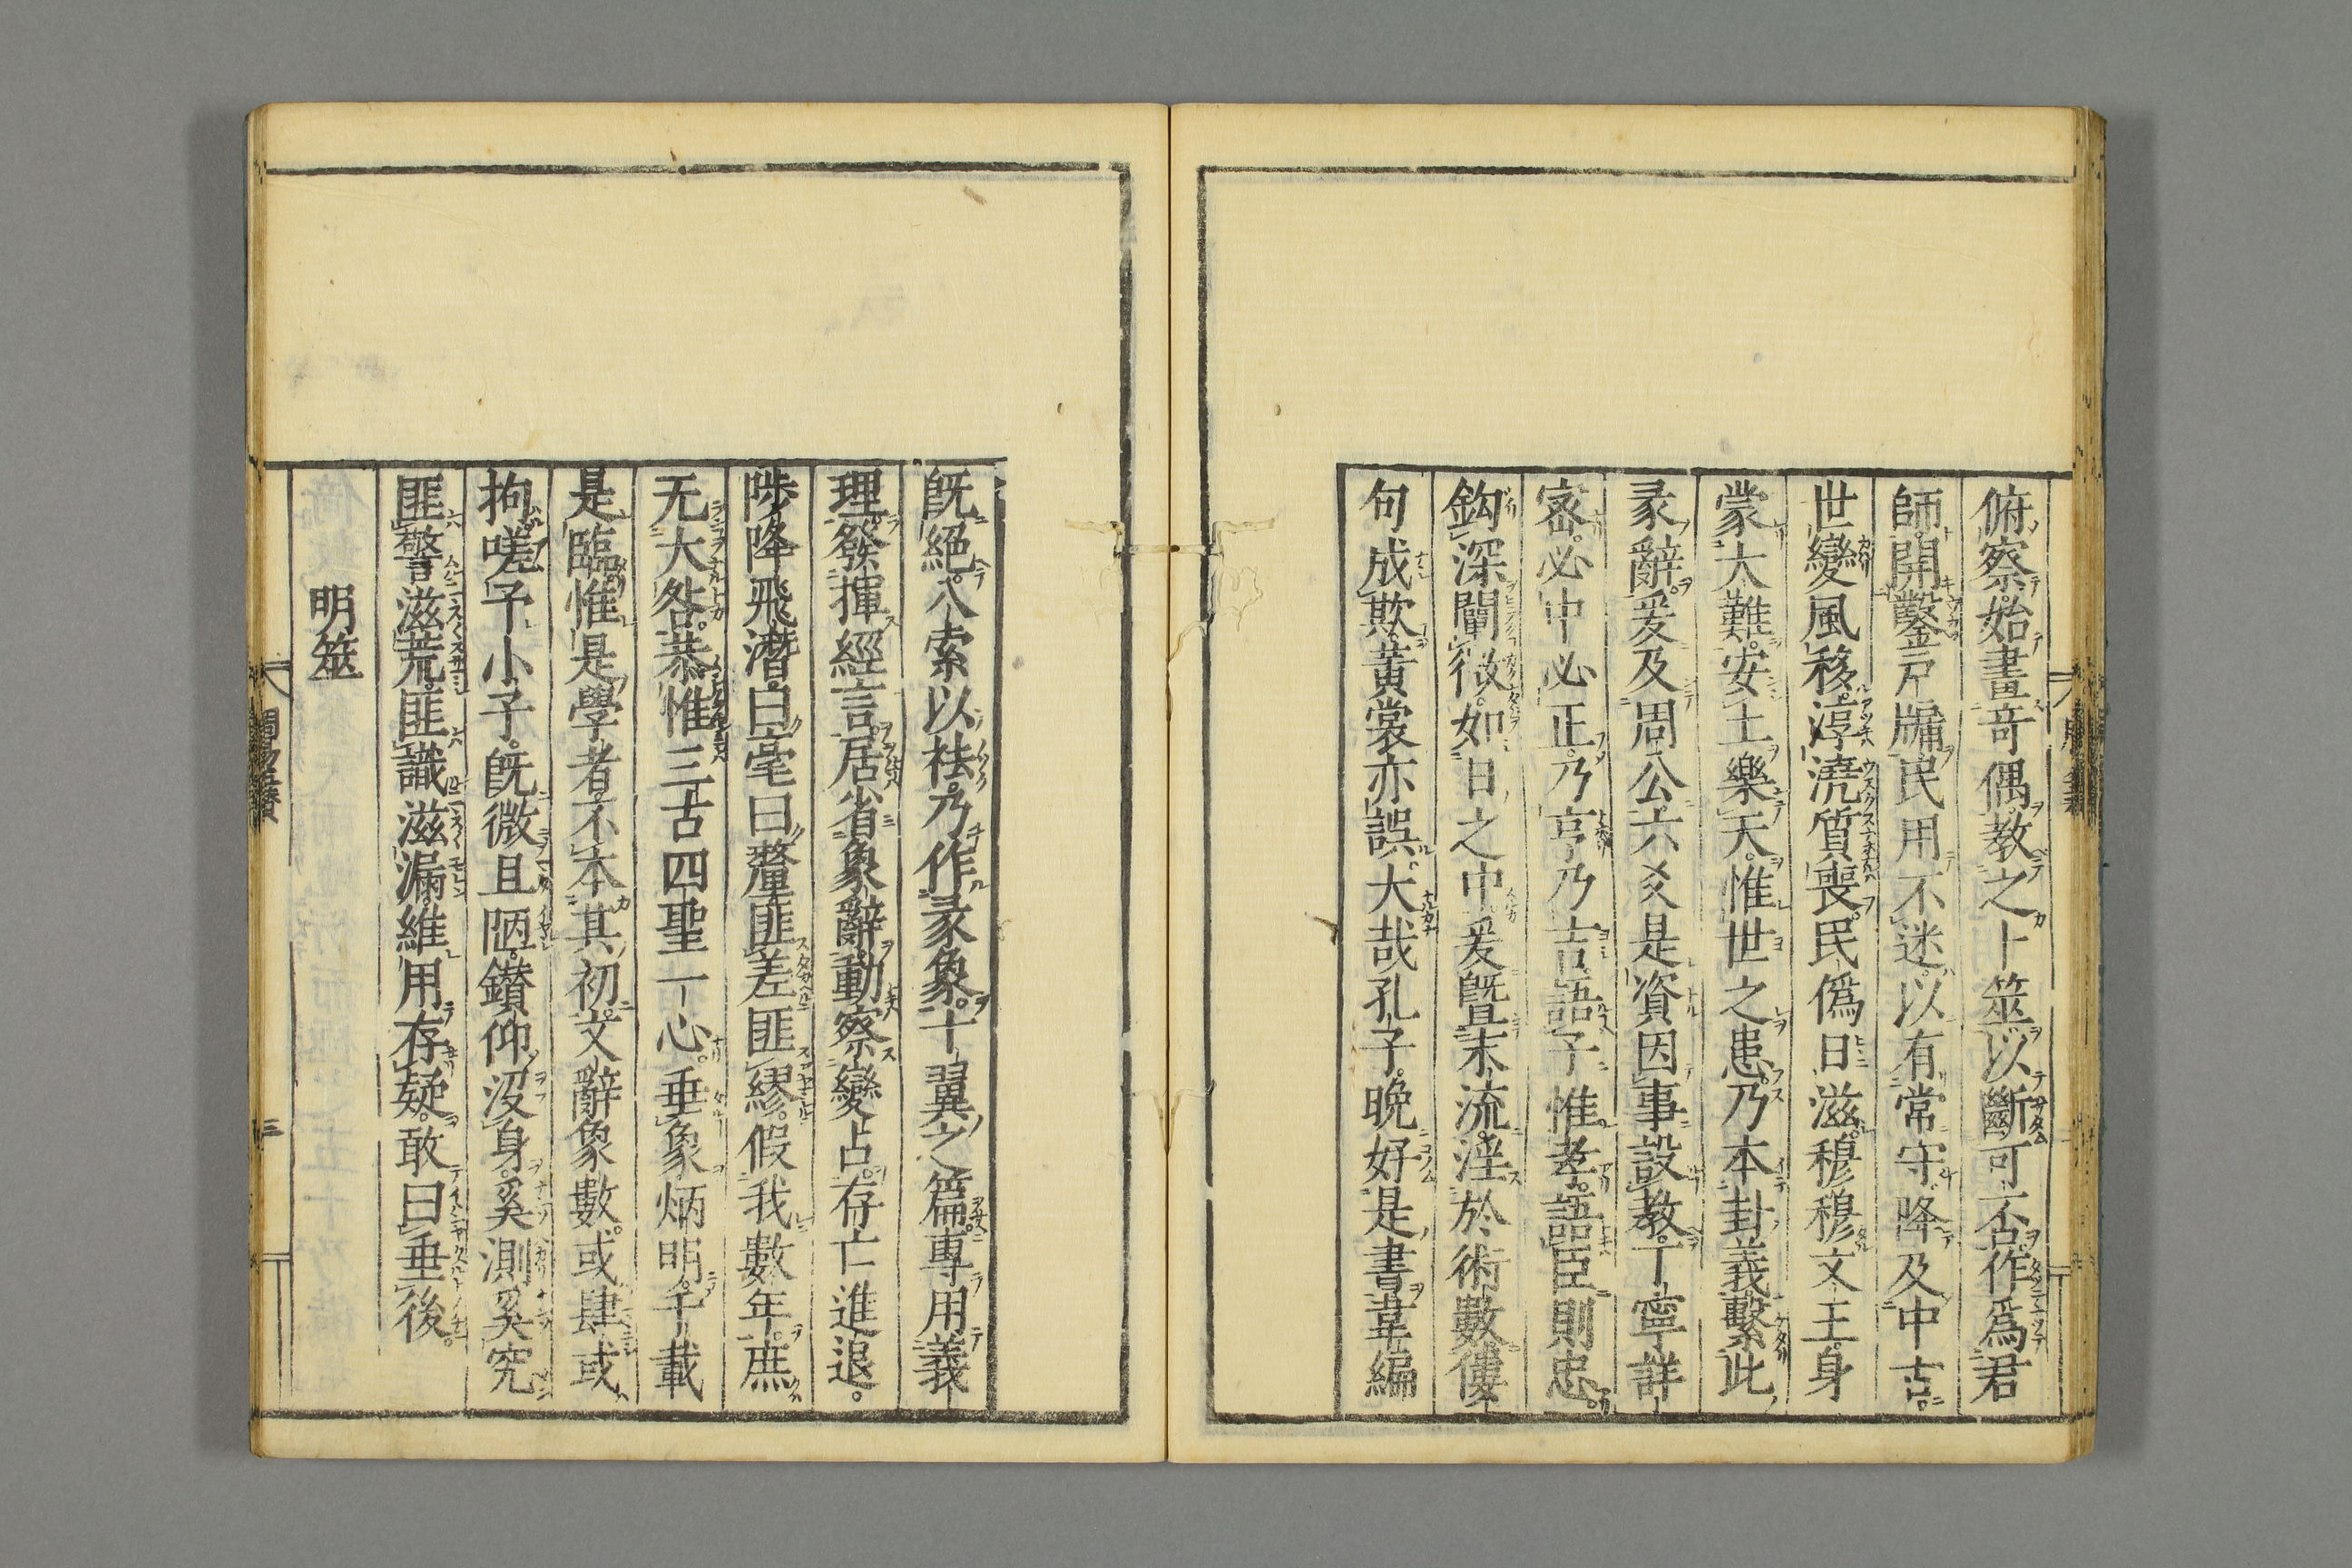 俯察始畫竒偶教之卜筮以斷可否作爲君
師開鑿戸牖民用不迷以有常守降及中古
世變風移淳澆質喪民僞日滋穆穆文王身
蒙大難安土樂天惟世之患乃本卦義繫此
彖辭爰及周公六爻是資因事設教丁寧詳
密必中必正乃亨乃吉語子惟孝語臣則忠
鈎深闡微如日之中爰曁末流淫於術數僂
句成欺黄裳亦誤大哉孔子晚好是書韋編
既絕八索以祛乃作彖象十翼之篇專用義
理發揮經言居省象辭動察變占存亡進退
陟降飛潛曰毫曰釐匪差匪繆假我數年庶
无大咎恭惟三古四聖一心垂象炳明千載
是臨惟是學者不本其初文辭象數或肆或
拘嗟予小子既微且陋鑚仰沒身奚測奚究
匪警滋荒匪識滋漏維用存疑敢曰垂後
明筮
三